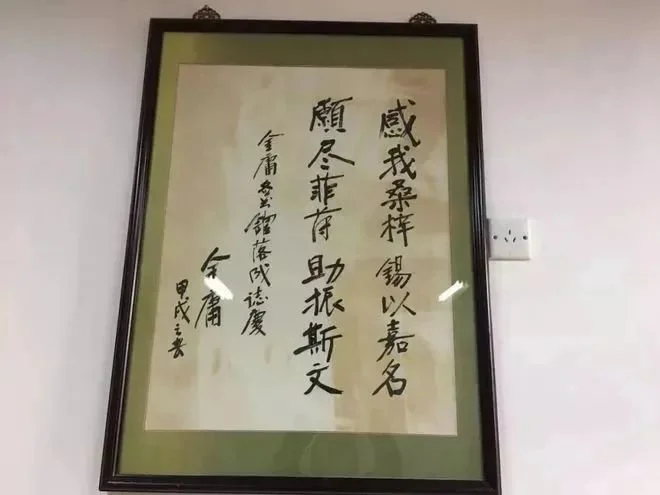 感我桑梓 錫以嘉名
願尽菲薄 助振斯文
金庸館落成誌慶
金庸
甲戌之春